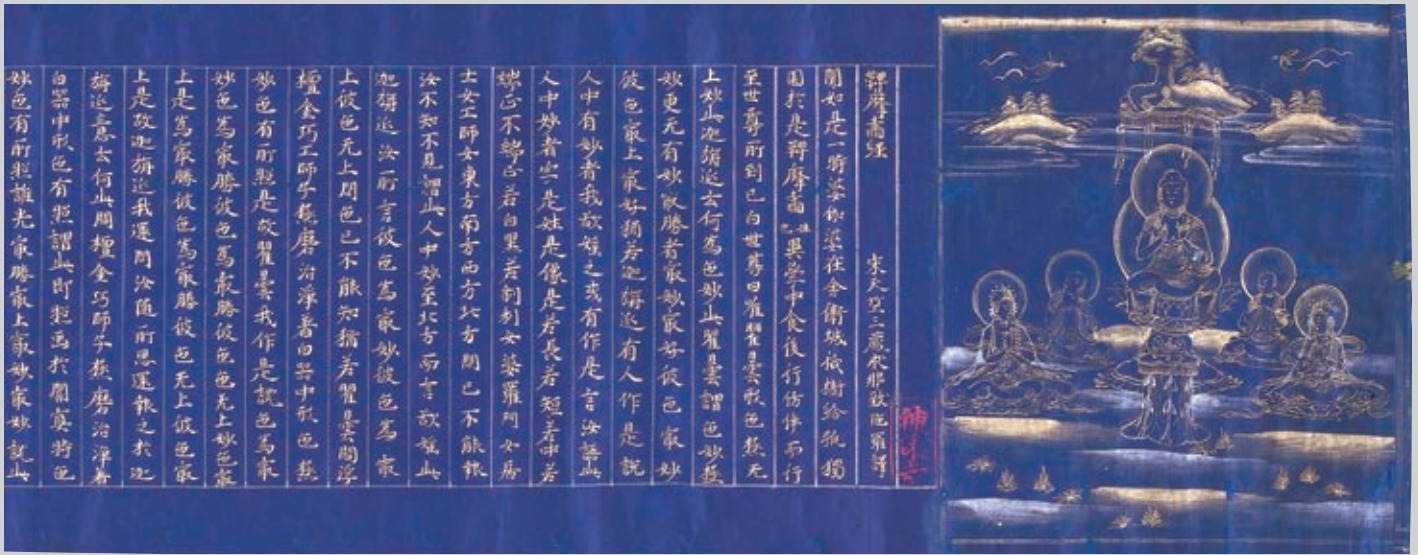 神護寺
鞞摩肅經 宋天竺三藏求那跋陀羅譯
聞如是一時婆伽婆在舍衛城祇樹給孤獨
園於是鞞摩肅姓也異學中食後行彷徉而行
至世尊所到已白世尊曰唯瞿曇我色㝡无
上妙此迦旃延云何為色妙此瞿曇謂色妙㝡
妙更无有妙㝡勝者㝡妙㝡好彼色㝡妙
彼色㝡上㝡好猶若迦旃延有人作是說
人中有妙者我欲婬之或有作是言汝語此
人中妙者字是姓是像是若長若短若中若
端正不端正若白黑若剎利女婆羅門女居
士女工師女東方南方西方北方問已不能報
汝不知不見謂此人中妙至北方而言欲婬此
迦旃延汝所言彼色為㝡妙彼色為㝡
上彼色无上問色已不能知猶若瞿曇閻浮
檀金巧工師子磨治淨著白器中形色㝡
妙色有所照是故瞿曇我作是說色為㝡
妙色為㝡勝彼色為㝡勝彼色色无上妙色㝡
上是為㝡勝彼色為㝡勝彼色无上彼色㝡
上是故迦旃延我還問汝隨所思還報之於迦
旃延意云何此閻檀金巧師子磨治淨著
白器中形色有照謂此即照於闇冥色
妙色有所照誰光㝡勝㝡上㝡妙㝡妙說此